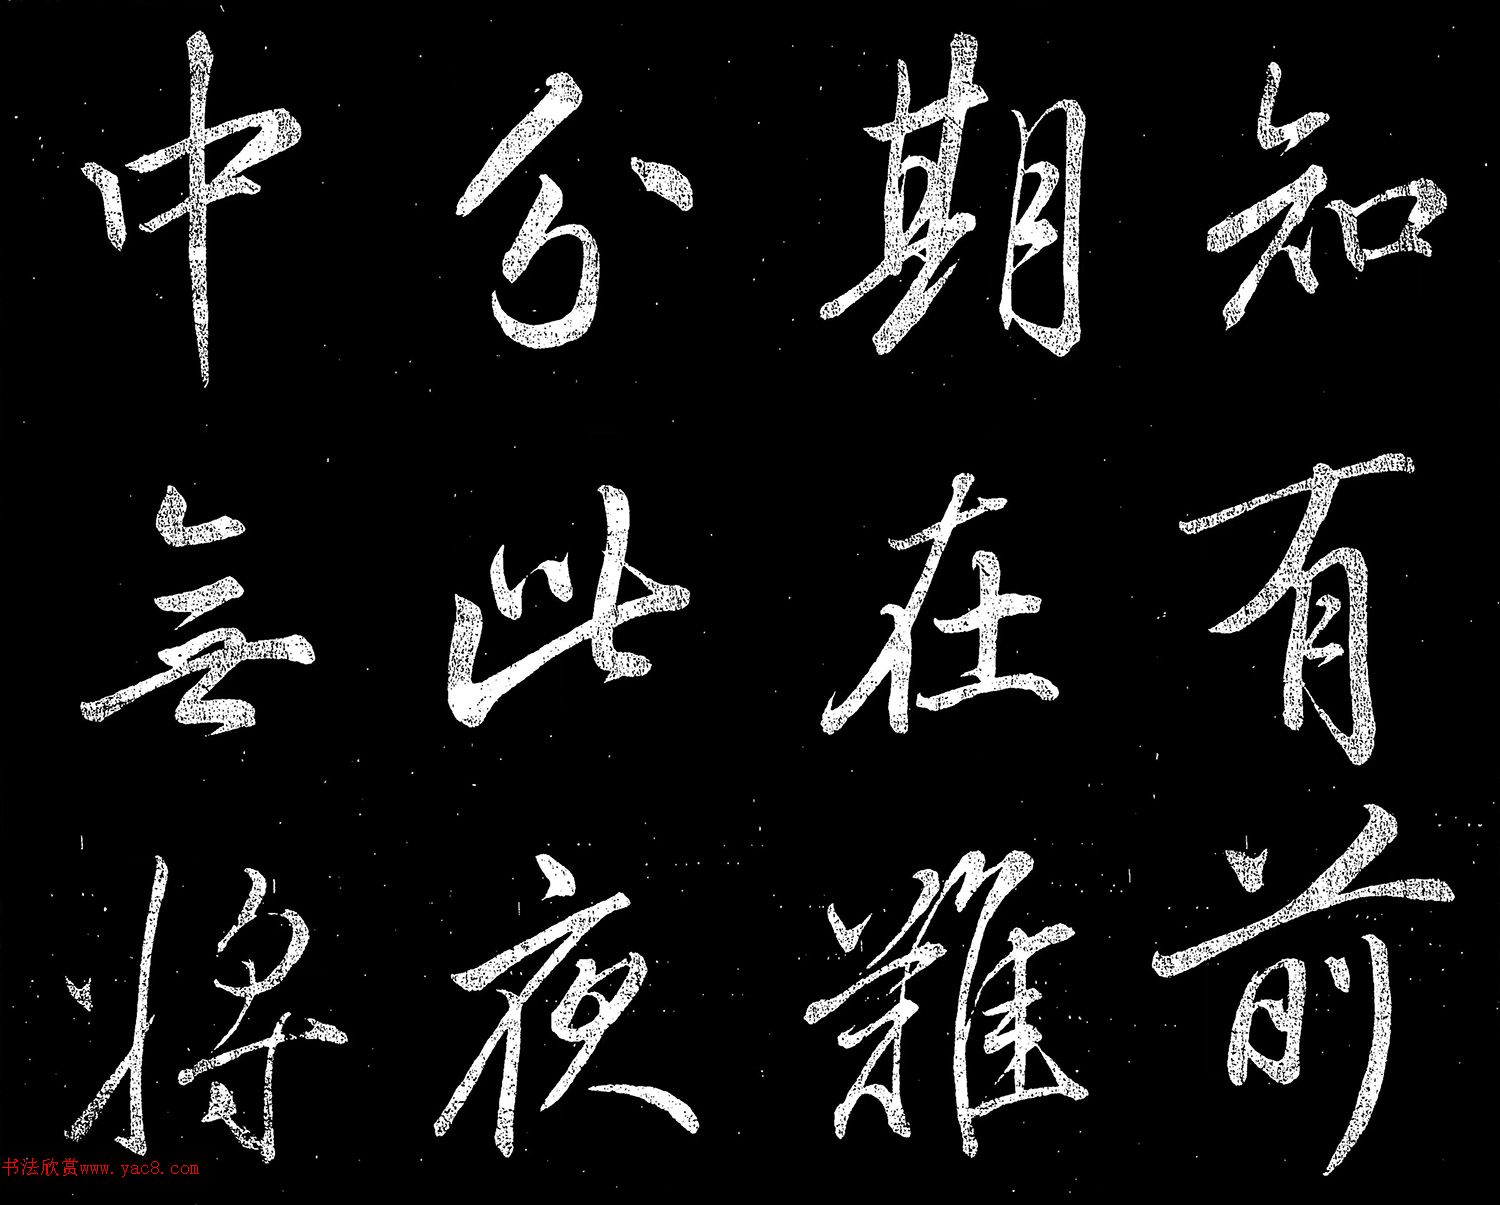 知有前
期在難
分此夜
中無將
书法欣赏www.yac8.com